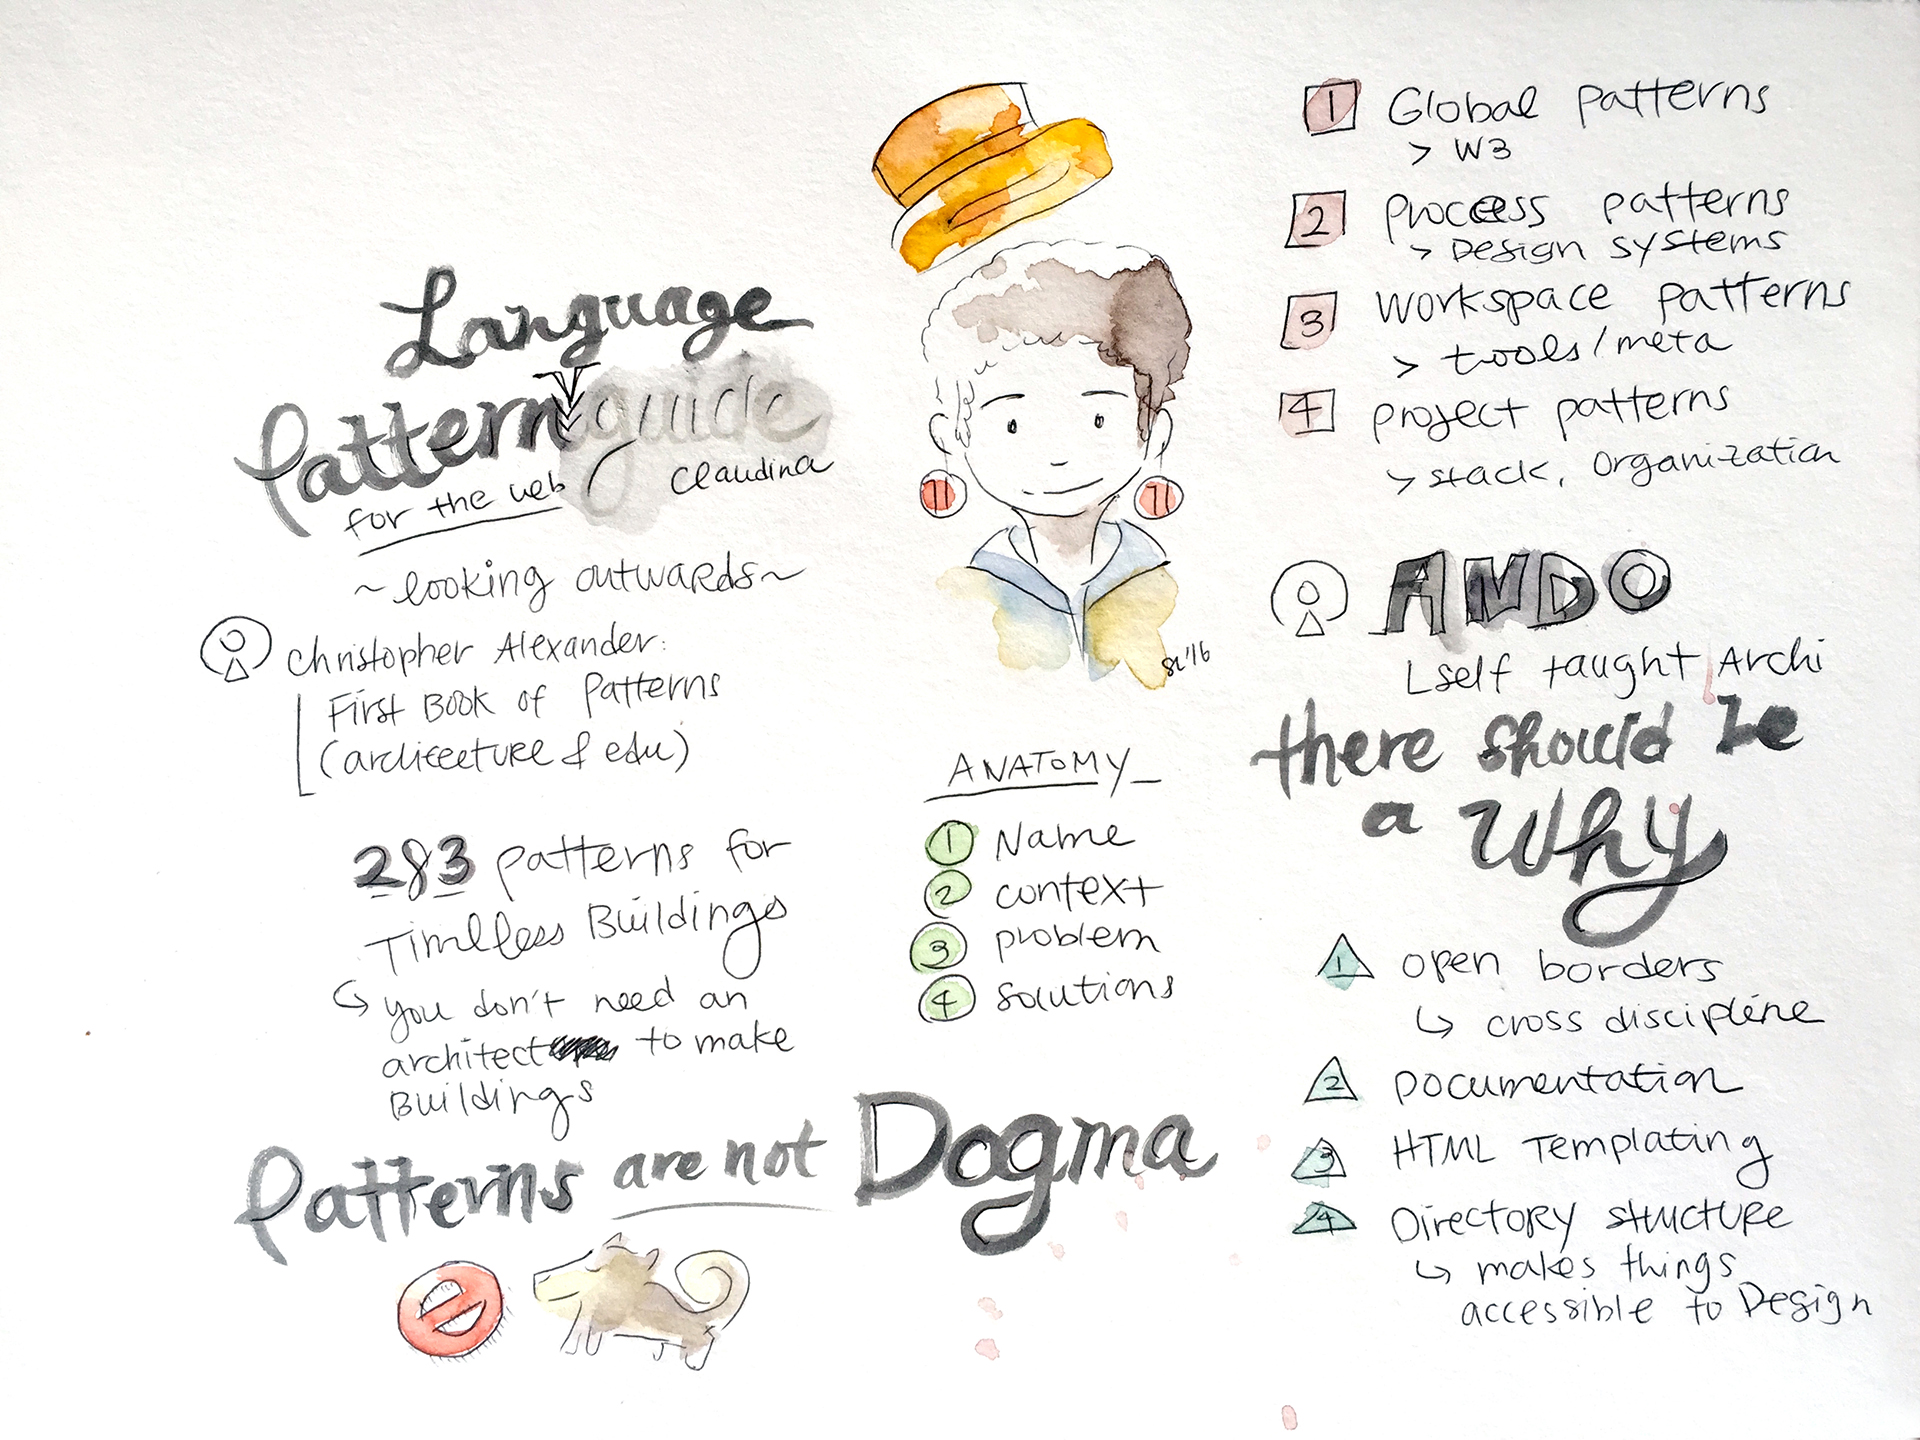 Language
Pattern guide
for the web
Claudina
~looking outwards~
Christopher Alexander:
First Book of Patterns
(architecture & edu)
283 patterns for
Timeless Buildings
you don't need an
architect to make
Buildings
Patterns are not Dogma
sl'16
ANATOMY_
1 Name
2 context
3 problem
4 solutions
1 Global patterns
> W3
2 process patterns
> Design systems
3 workspace patterns
> tools/meta
4 project patterns
> stack, Organization
ANDO
self taught Archi
there should be
a Why
1 open borders
cross discipline
2 Documentation
3 HTML Templating
4 Directory structure
makes things
accessible to Design